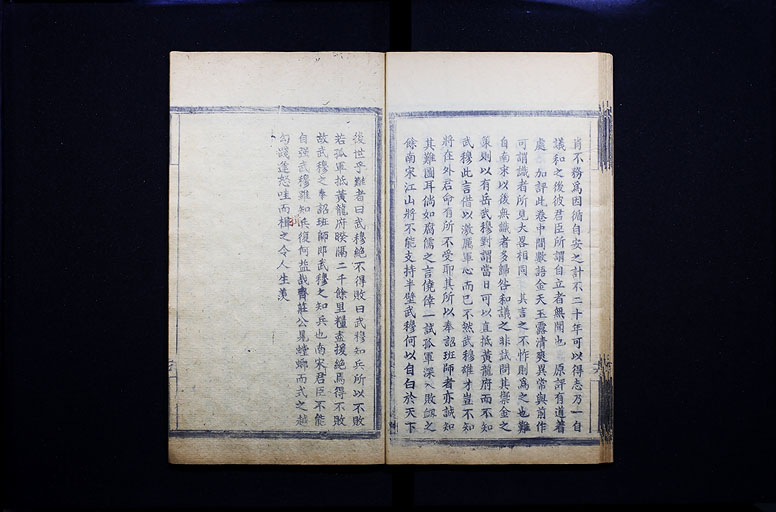 肖不務爲因循自安之計不二十年可以得志乃一自
議和之後彼君臣所謂自立者無聞也 原評有道着
處 加評此卷中間數語金天玉露清爽異常與前作
可謂識者所見大畧相同 其言之不怍則爲之也難
自南宋以後無識者多歸咎和議之非試問其禦金之
策則以有岳武穆對謂當日可以直抵黃龍府而不知
武穆此言借以激厲軍心而已不然武穆雄才豈不知
將在外君命有所不受耶其所以奉詔班師者亦誠知
其難圖耳倘如腐儒之言僥倖一試孤軍深入敗衂之
餘南宋江山將不能支持半壁武穆何以自白於天下
後世乎難者曰武穆絶不得敗曰武穆知兵所以不敗
若孤軍抵黃龍府睽隔二千餘里糧盡援絶焉得不敗
故武穆之奉詔班師即武穆之知兵也南宋君臣不能
自强武穆雖知兵復何益哉齊莊公見螳螂而式之越
勾踐蓬怒哇而楫之令人生羨